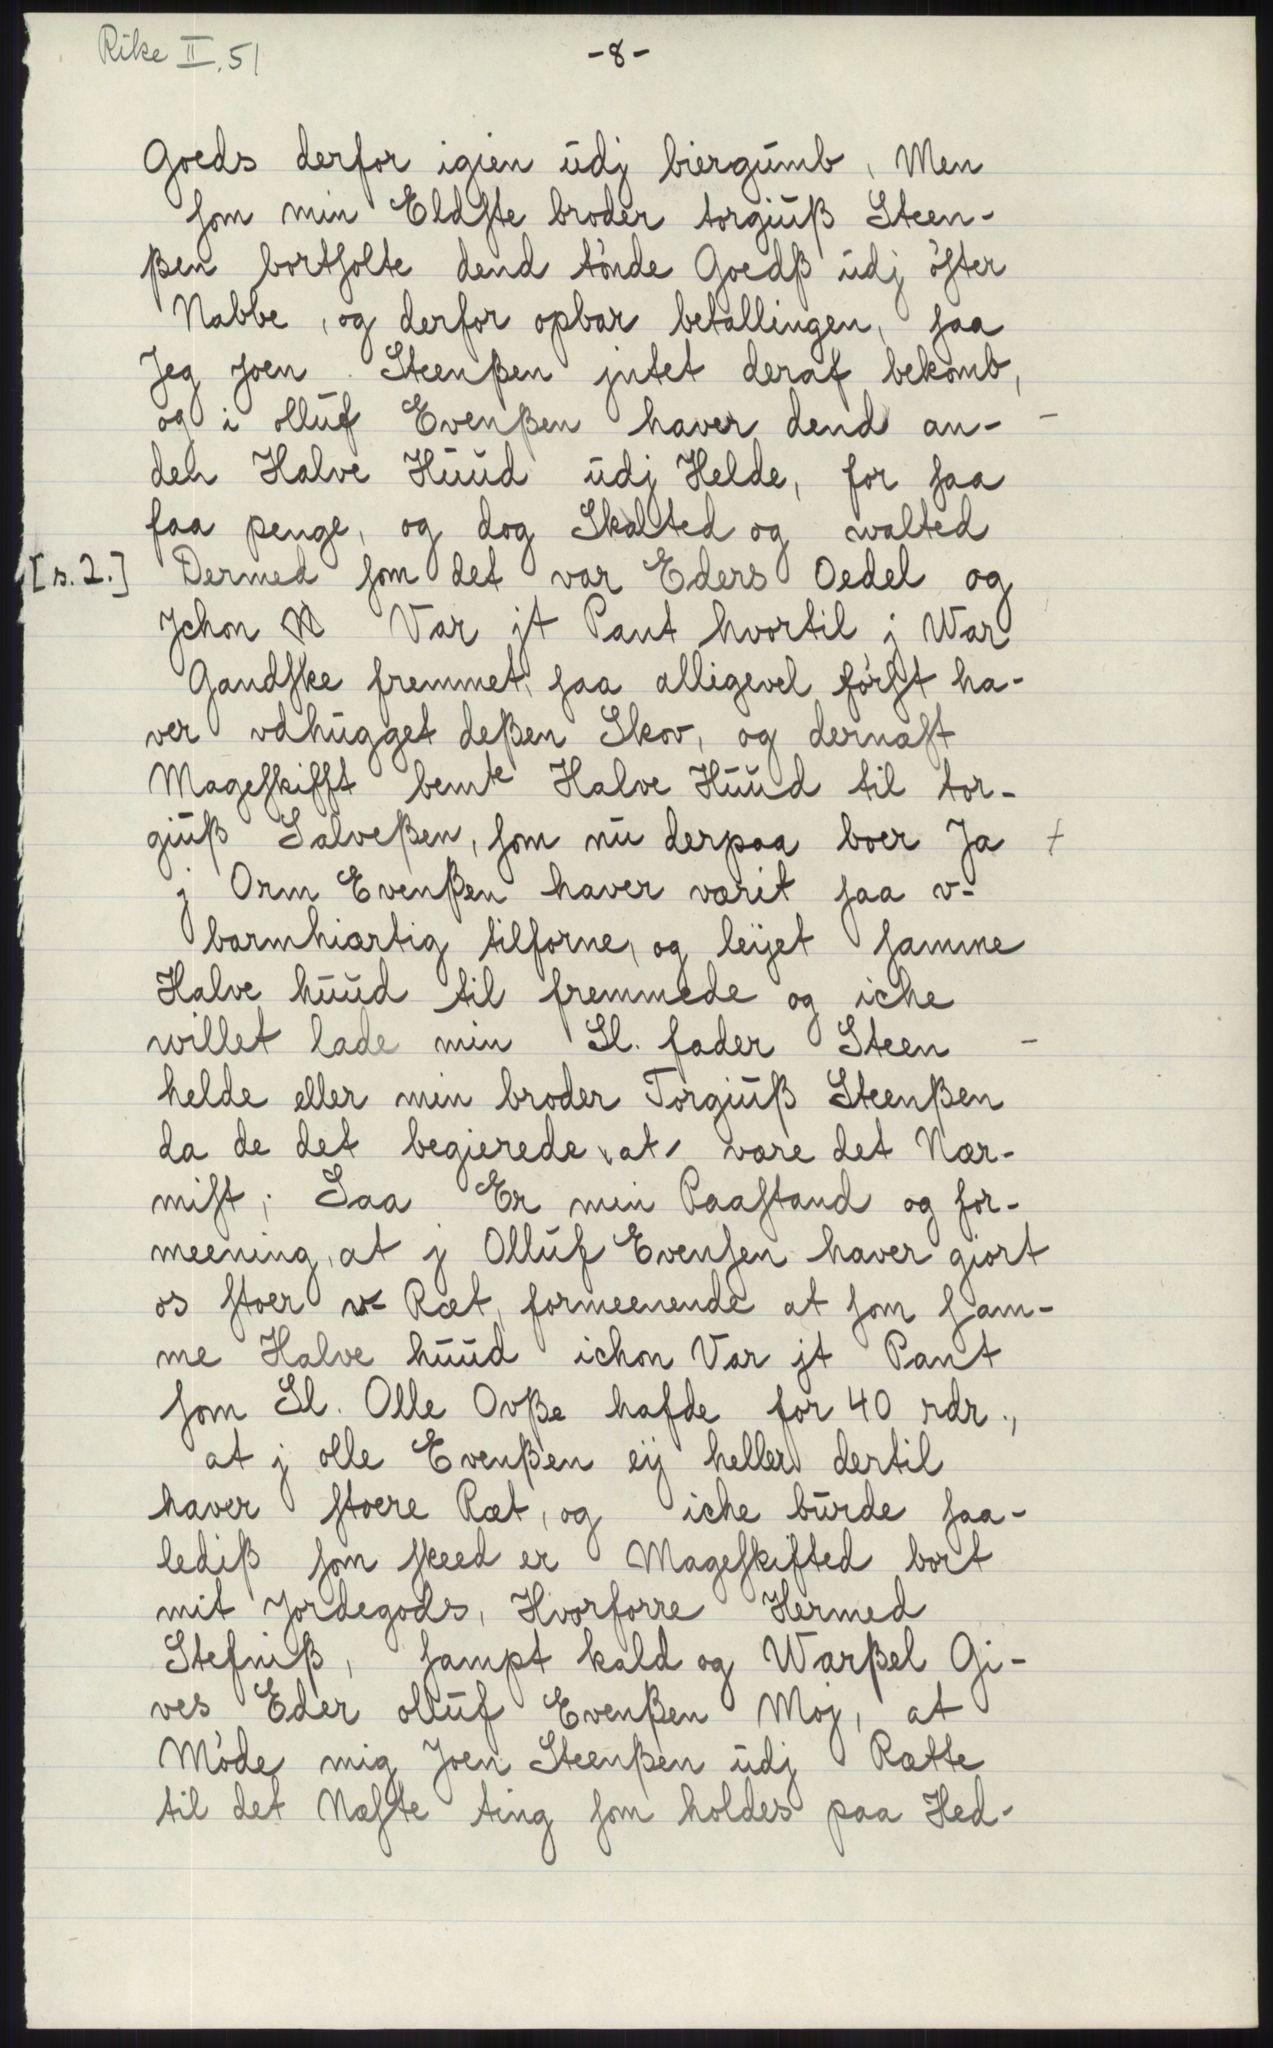 Rike II, 51
-8-
Goeds derfor igien udj biergumb, Men
som min Eldste broder torgiuß Steen-
ßen bortsolte dend tønde Goedß udj øster
Nabbe, og derfor opbar betallingen, saa
Jeg Joen Steenßen jntet deraf bekomb,
og i olluf Evenßen haver dend an- -
den Halve Huud udj Helde, for saa
faa penge, og dog Skalted og walted
[s. 2.] Dermed som det var Eders Oedel og
Jchon Var jt Pant hvortil j War
Gandske fremmet, saa alligevel først ha-
ver vdhugget deßen Skov, og dernæst
Mageskifft bemte Halve Huud til tor-
giuß Salveßen, som nu derpaa boer Ja +
j Orm Evenßen haver værit saa v-
barmhiærtig tilforne, og leijet samme
Halve huud til fremmede og iche
willet lade min Sl. fader Steen -
helde eller min broder Torgiuß Steenßen
da de det begierede at være det Nær-
mist; Saa Er min Paastand og for-
meening, at j Olluf Evensen haver giort
os stoer v- Ræt, formeenende at som sam-
me Halve huud ichon Var jt Pant
som Sl. Olle Ovße hafde for 40 rdr.,
at j olle Evenßen eij heller dertil
haver stoere Ræt, og iche burde saa-
lediß som skeed er Mageskifted bort
mit Jordegods, Hvorforre Hermed
Stefniß, sampt kald og Warßel Gi-
ves Eder olluf Evenßen Moj, at
Møde mig Joen Steenßen udj Rætte
til det Næste ting som holdes paa Hed-